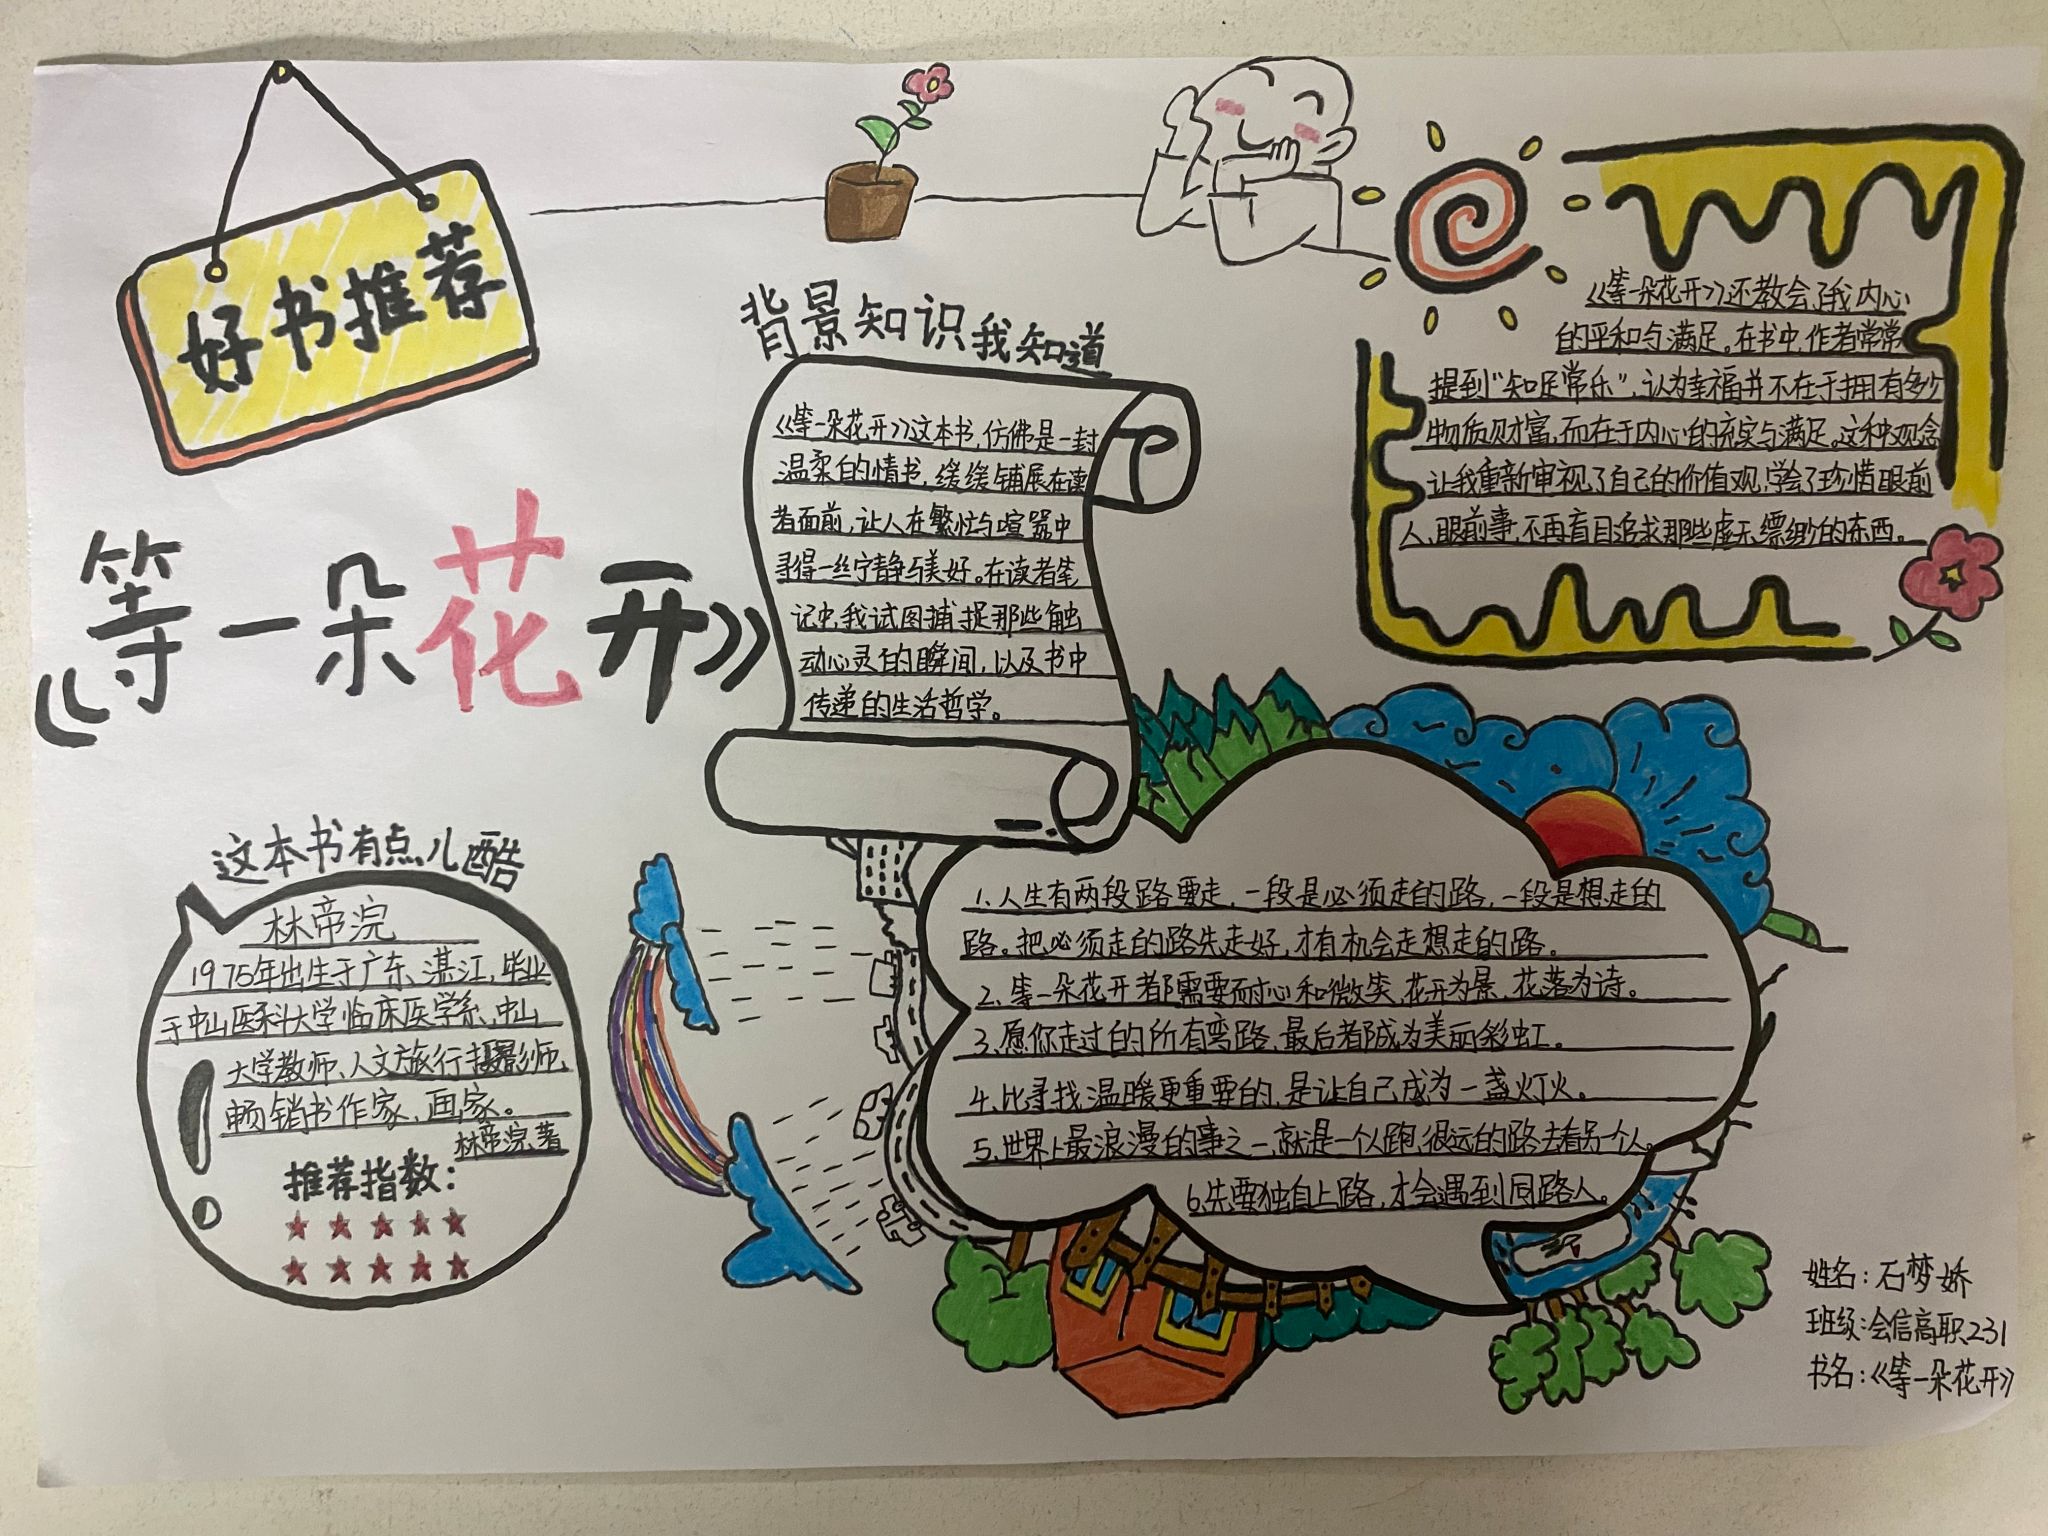 好书推荐
《等一朵花开》
背景知识我知道
《等一朵花开》这本书,仿佛是一封
温柔的情书,缓缓铺展在读
者面前,让人在繁忙与喧嚣中
寻得一丝宁静与美好。在读者笔
记中,我试图捕捉那些触
动心灵的瞬间,以及书中
传递的生活哲学。
《等一朵花开》还教会了我内心
的平和与满足。在书中,作者常常
提到“知足常乐”,认为幸福并不在于拥有多少
物质财富,而在于内心的充实与满足。这种观念
让我重新审视了自己的价值观,学会了珍惜眼前
人、眼前事,不再盲目追求那些虚无缥缈的东西。
这本书有点儿酷
林帝浣
1975年出生于广东、湛江,毕业
于中山医科大学临床医学系,中山
大学教师、人文旅行摄影师、
畅销书作家、画家。
林帝浣著
推荐指数:
★★★★★
★★★★★
1、人生有两段路要走,一段是必须走的路,一段是想走的
路。把必须走的路先走好,才有机会走想走的路。
2、等一朵花开都需要耐心和微笑,花开为景,花落为诗。
3、愿你走过的所有弯路,最后都成为美丽彩虹。
4、比寻找温暖更重要的,是让自己成为一盏灯火。
5、世界上最浪漫的事之一,就是一个人跑很远的路去看另一个人。
6、先要独自上路,才会遇到同路人。
姓名:石梦娇
班级:会信高职231
书名:《等一朵花开》